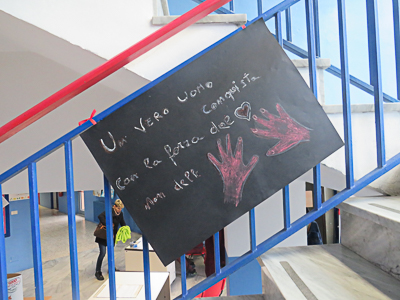 Un VERO UOMO
conquista
con la forza del ♡
non delle